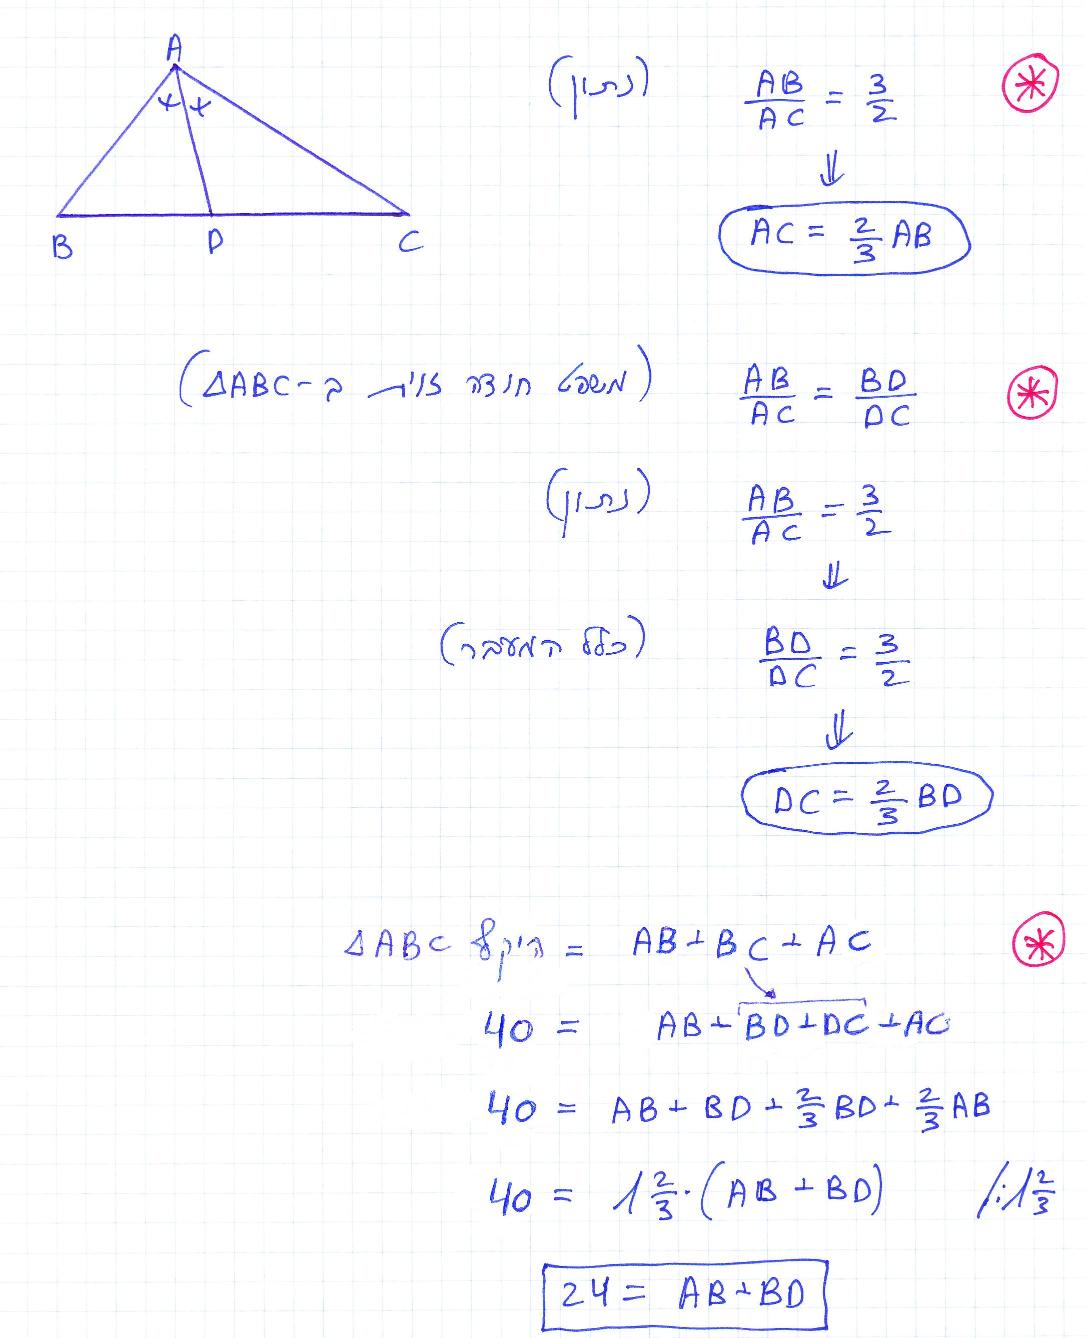 A
B D C
(נתון) AB/AC = 3/2 *
⇓
AC = 2/3 AB
(משפט חוצה זוית ב-ΔABC) AB/AC = BD/DC *
(נתון) AB/AC = 3/2
⇓
(כלל המעבר) BD/DC = 3/2
⇓
DC = 2/3 BD
ΔABC היקף = AB + BC + AC *
40 = AB + BD + DC + AC
40 = AB + BD + 2/3 BD + 2/3 AB
40 = 1 2/3 · (AB + BD) /:1 2/3
24 = AB + BD